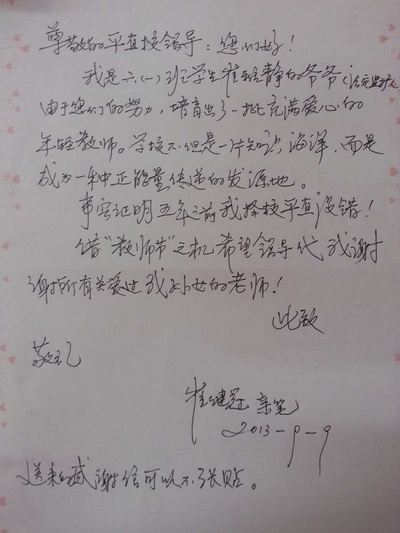 尊敬的平直校领导：您们好！
我是六(一)班学生崔 静的爷爷（法定监护人）
由于您们的努力，培育出了一批充满爱心的
年轻教师。学校不但是一片知识海洋，而是
成为一种正能量传递的发源地。
事实证明五年之前我择校平直没错！
借“教师节”之机希望领导代我谢
谢所有关爱过我孙女的老师！
此致
敬礼
崔继冠 亲笔
2013-9-9
送来的感谢信可以不张贴。